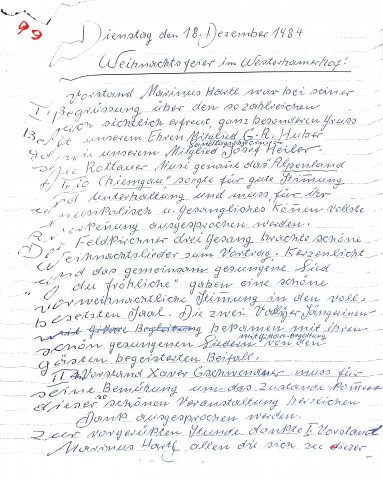 99
Dienstag den 18. Dezember 1984
Weihnachtsfeier im Westerhamerhof!
Vorstand Marinus Hartl war bei seiner
Begrüssung über den so zahlreichen
sichtlich erfreut ganz besonderen Gruss
unserem Ehren Mitglied G.R. Huber
unserem Mitglied Josef Heiler.
Die Rottauer Musi genannt das Alpenland
Trio Chiemgau" sorgte für gute Stimmung
und Unterhaltung und muss für ihr
musikalisch u. Gesangliches Können vollste
ausgesprochen werden.
Der Feldkirchner drei Gesang brachte schöne
Weihnachtslieder zum Vortrag. Kerzenlicht
und das gemeinsam gesungene Lied
"O du fröhliche" gaben eine schöne
vorweihnachtliche Stimung in den voll-
besetzten Saal. Die zwei Sängerinen
mit Gitare Begleitung bekamen mit ihren
schön gesungenen Liedern mit Gitare-Begleitung von den
Gästen begeisterten Beifall.
II Vorstand Xaver Gschwendner muss für
seine Bemühung um das Zustande komen
dieser so schönen Veranstaltung herzlichen
Dank ausgesprochen werden.
Zur vorgerückten Stunde dankte I. Vorstand
Marinus Hartl allen die sich zu dieser